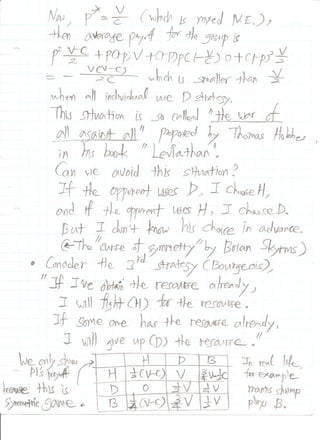 Now, p* = V/C (which is mixed N.E.),
then average payoff for the group is
p² (V-C)/2 + p(1-p)V + (1-p)p 0 + (1-p)² V/2
= - V(V-C)/2C which is smaller than V/2
when all individual use D strategy.
This situation is so called "the war of
all against all" proposed by Thomas Hobbes
in his book "Leviathan".
Can we avoid this situation?
If the opponent uses D, I choose H,
and if the opponent uses H, I choose D.
But I don't know his choice in advance.
(The "curse of symmetry" by Brian Skyrms)
• Consider the 3rd strategy (Bourgeois),
"If I've obtain the resource already,
I will fight (H) for the resource.
If some one has the resource already,
I will give up (D) the resource."
We only show P1's payoff because this is symmetric game.
H D B
H ½(V-C) V ¾V-¼C
D 0 ½V ¼V
B ¼(V-C) ¾V ½V
In real life, for example mantis shrimp plays B.